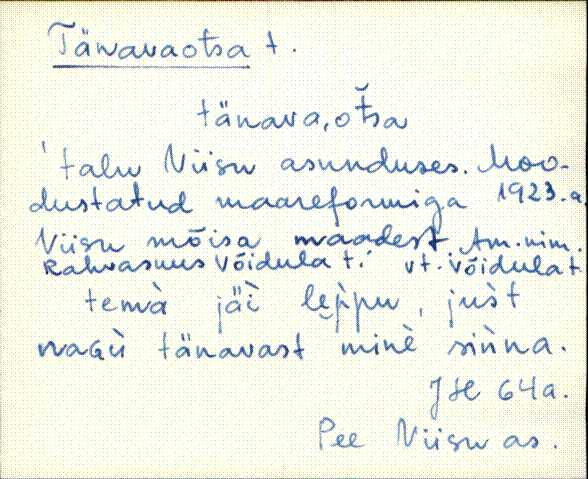 Tänavaotsa t.
tänava,otsa
'talu Viisu asunduses. Moo-
dustatud maareformiga 1923.a.
Viisu mõisa maadest. Am.nim.
Rahvasuus Võidula t. vt. Võidula t
temà jäi lèppu, just
nagù tänavast minè sinna.
64a.
Pee Viisu as.